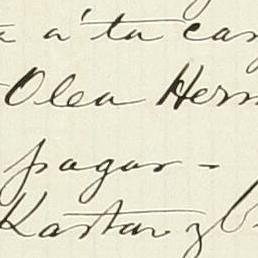 a á ta can
Olea Herm
pagar -
Kastan y C